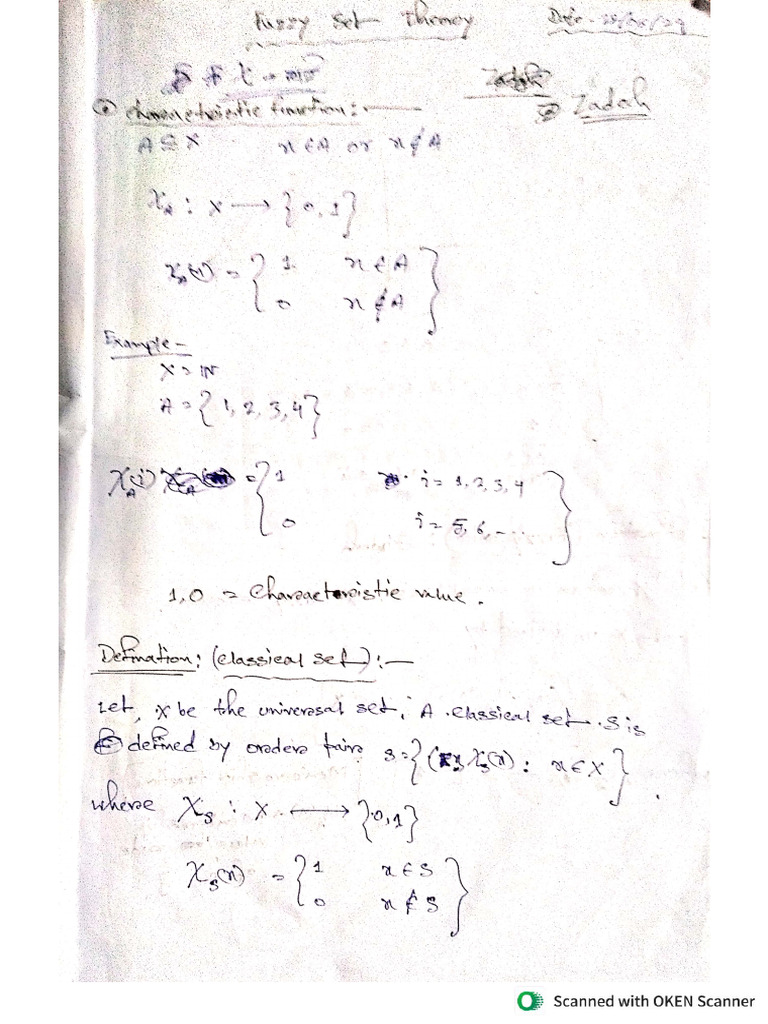 Fuzzy Set Theory
Date -
Zadah
characteristic function: -
A ⊆ X x ∈ A or x ∉ A
χ_A : X → {0, 1}
χ_A(x) = { 1 x ∈ A
0 x ∉ A }
Example -
X = ℕ
A = {1, 2, 3, 4}
χ_A(i) = { 1 i = 1, 2, 3, 4
0 i = 5, 6, ... }
1, 0 = Characteristic value.
Defination: (classical set) : -
Let, X be the universal set, A classical set S is
defined by orders pairs S = {(x, χ_S(x) : x ∈ X}
where χ_S : X ⟼ {0, 1}
χ_S(x) = { 1 x ∈ S
0 x ∉ S }
Scanned with OKEN Scanner